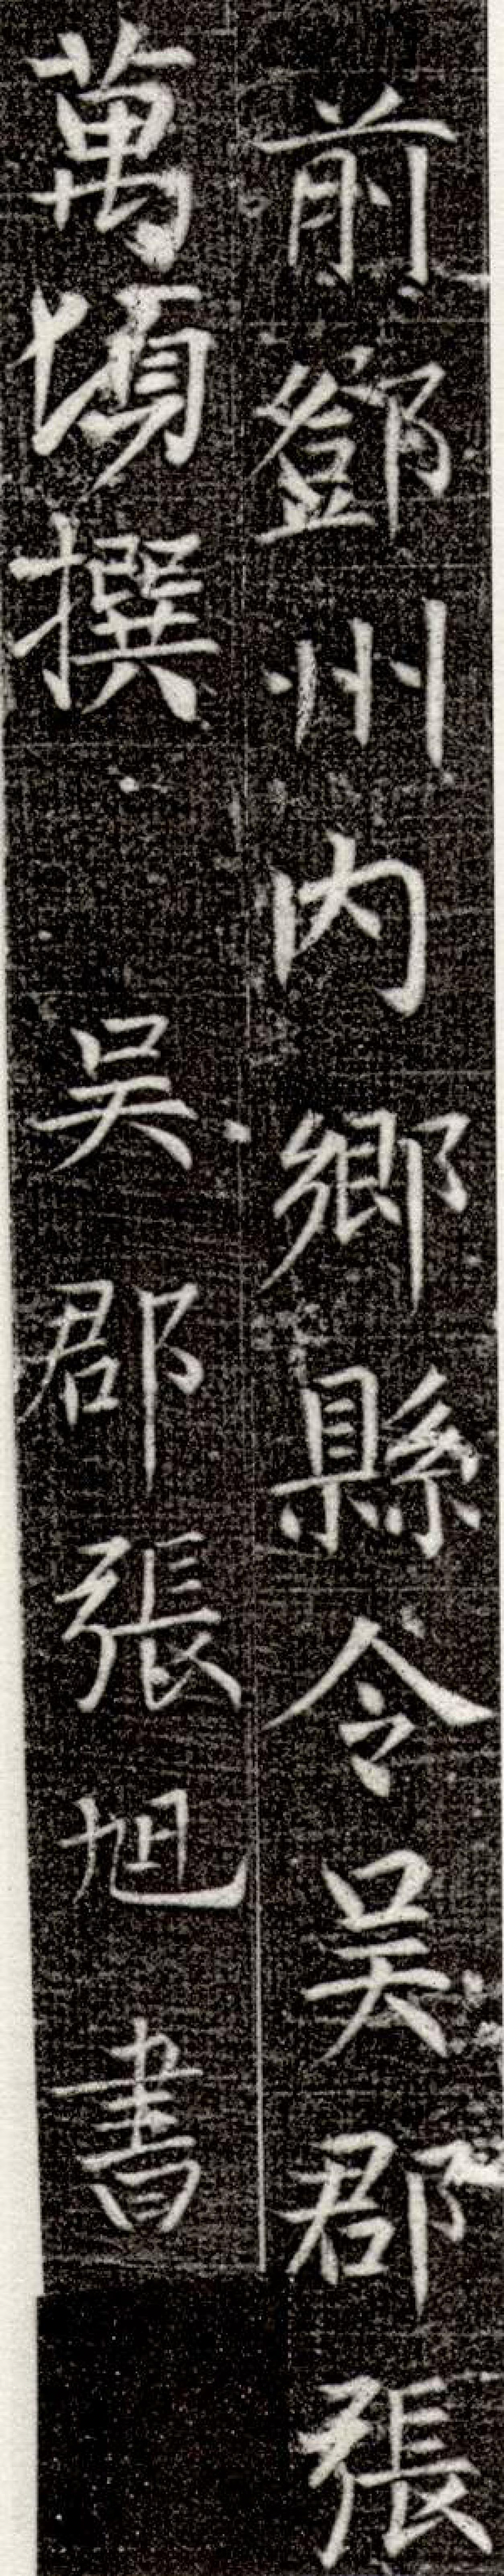 前鄧州內鄉縣令吳郡張
萬頃撰 吳郡張旭書